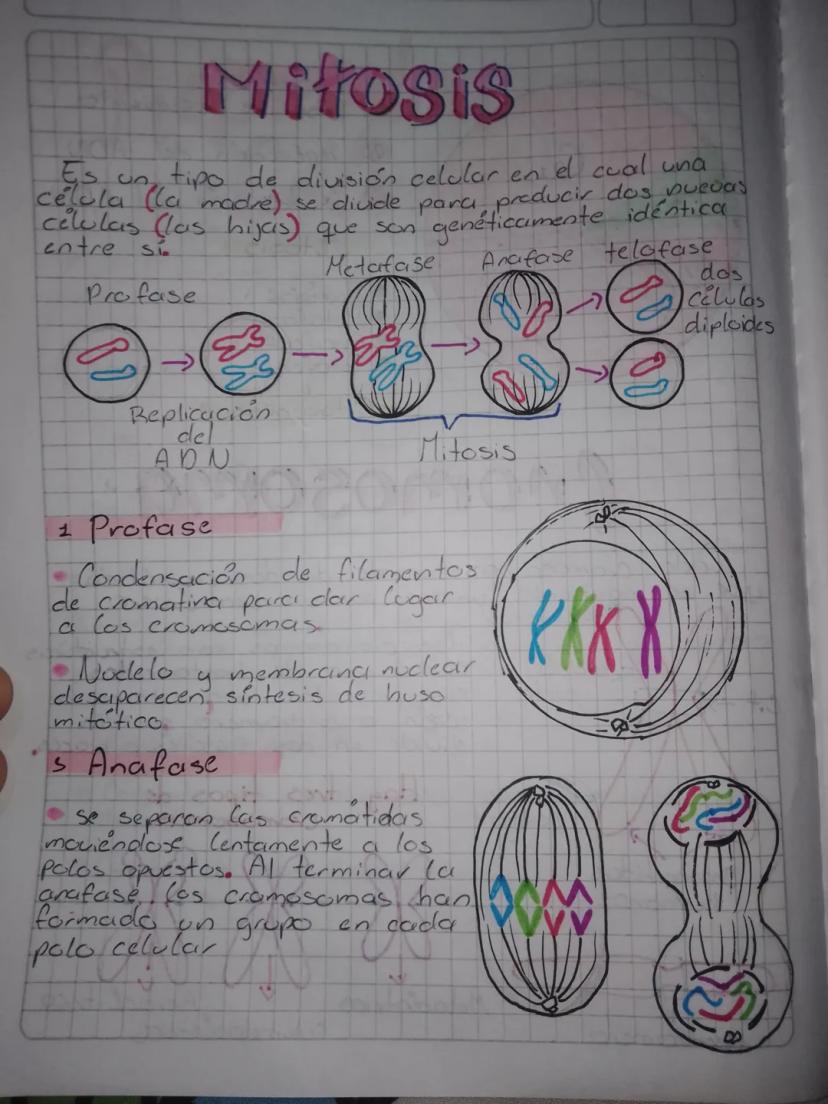 Mitosis
Es un tipo de división celular en el cual una
célula (la madre) se divide para producir dos nuevas
células (las hijas) que son genéticamente idéntica
entre sí.
Profase
Metafase
Anafase
telofase
dos
células
diploides
Replicación
del
ADN
Mitosis
1 Profase
• Condensación de filamentos
de cromatina para dar lugar
a los cromosomas.
• Nucleolo y membrana nuclear
desaparecen, síntesis de huso
mitótico.
5 Anafase
• se separan las cromátidas
moviéndose lentamente a los
polos opuestos. Al terminar la
anafase, los cromosomas han
formado un grupo en cada
polo celular